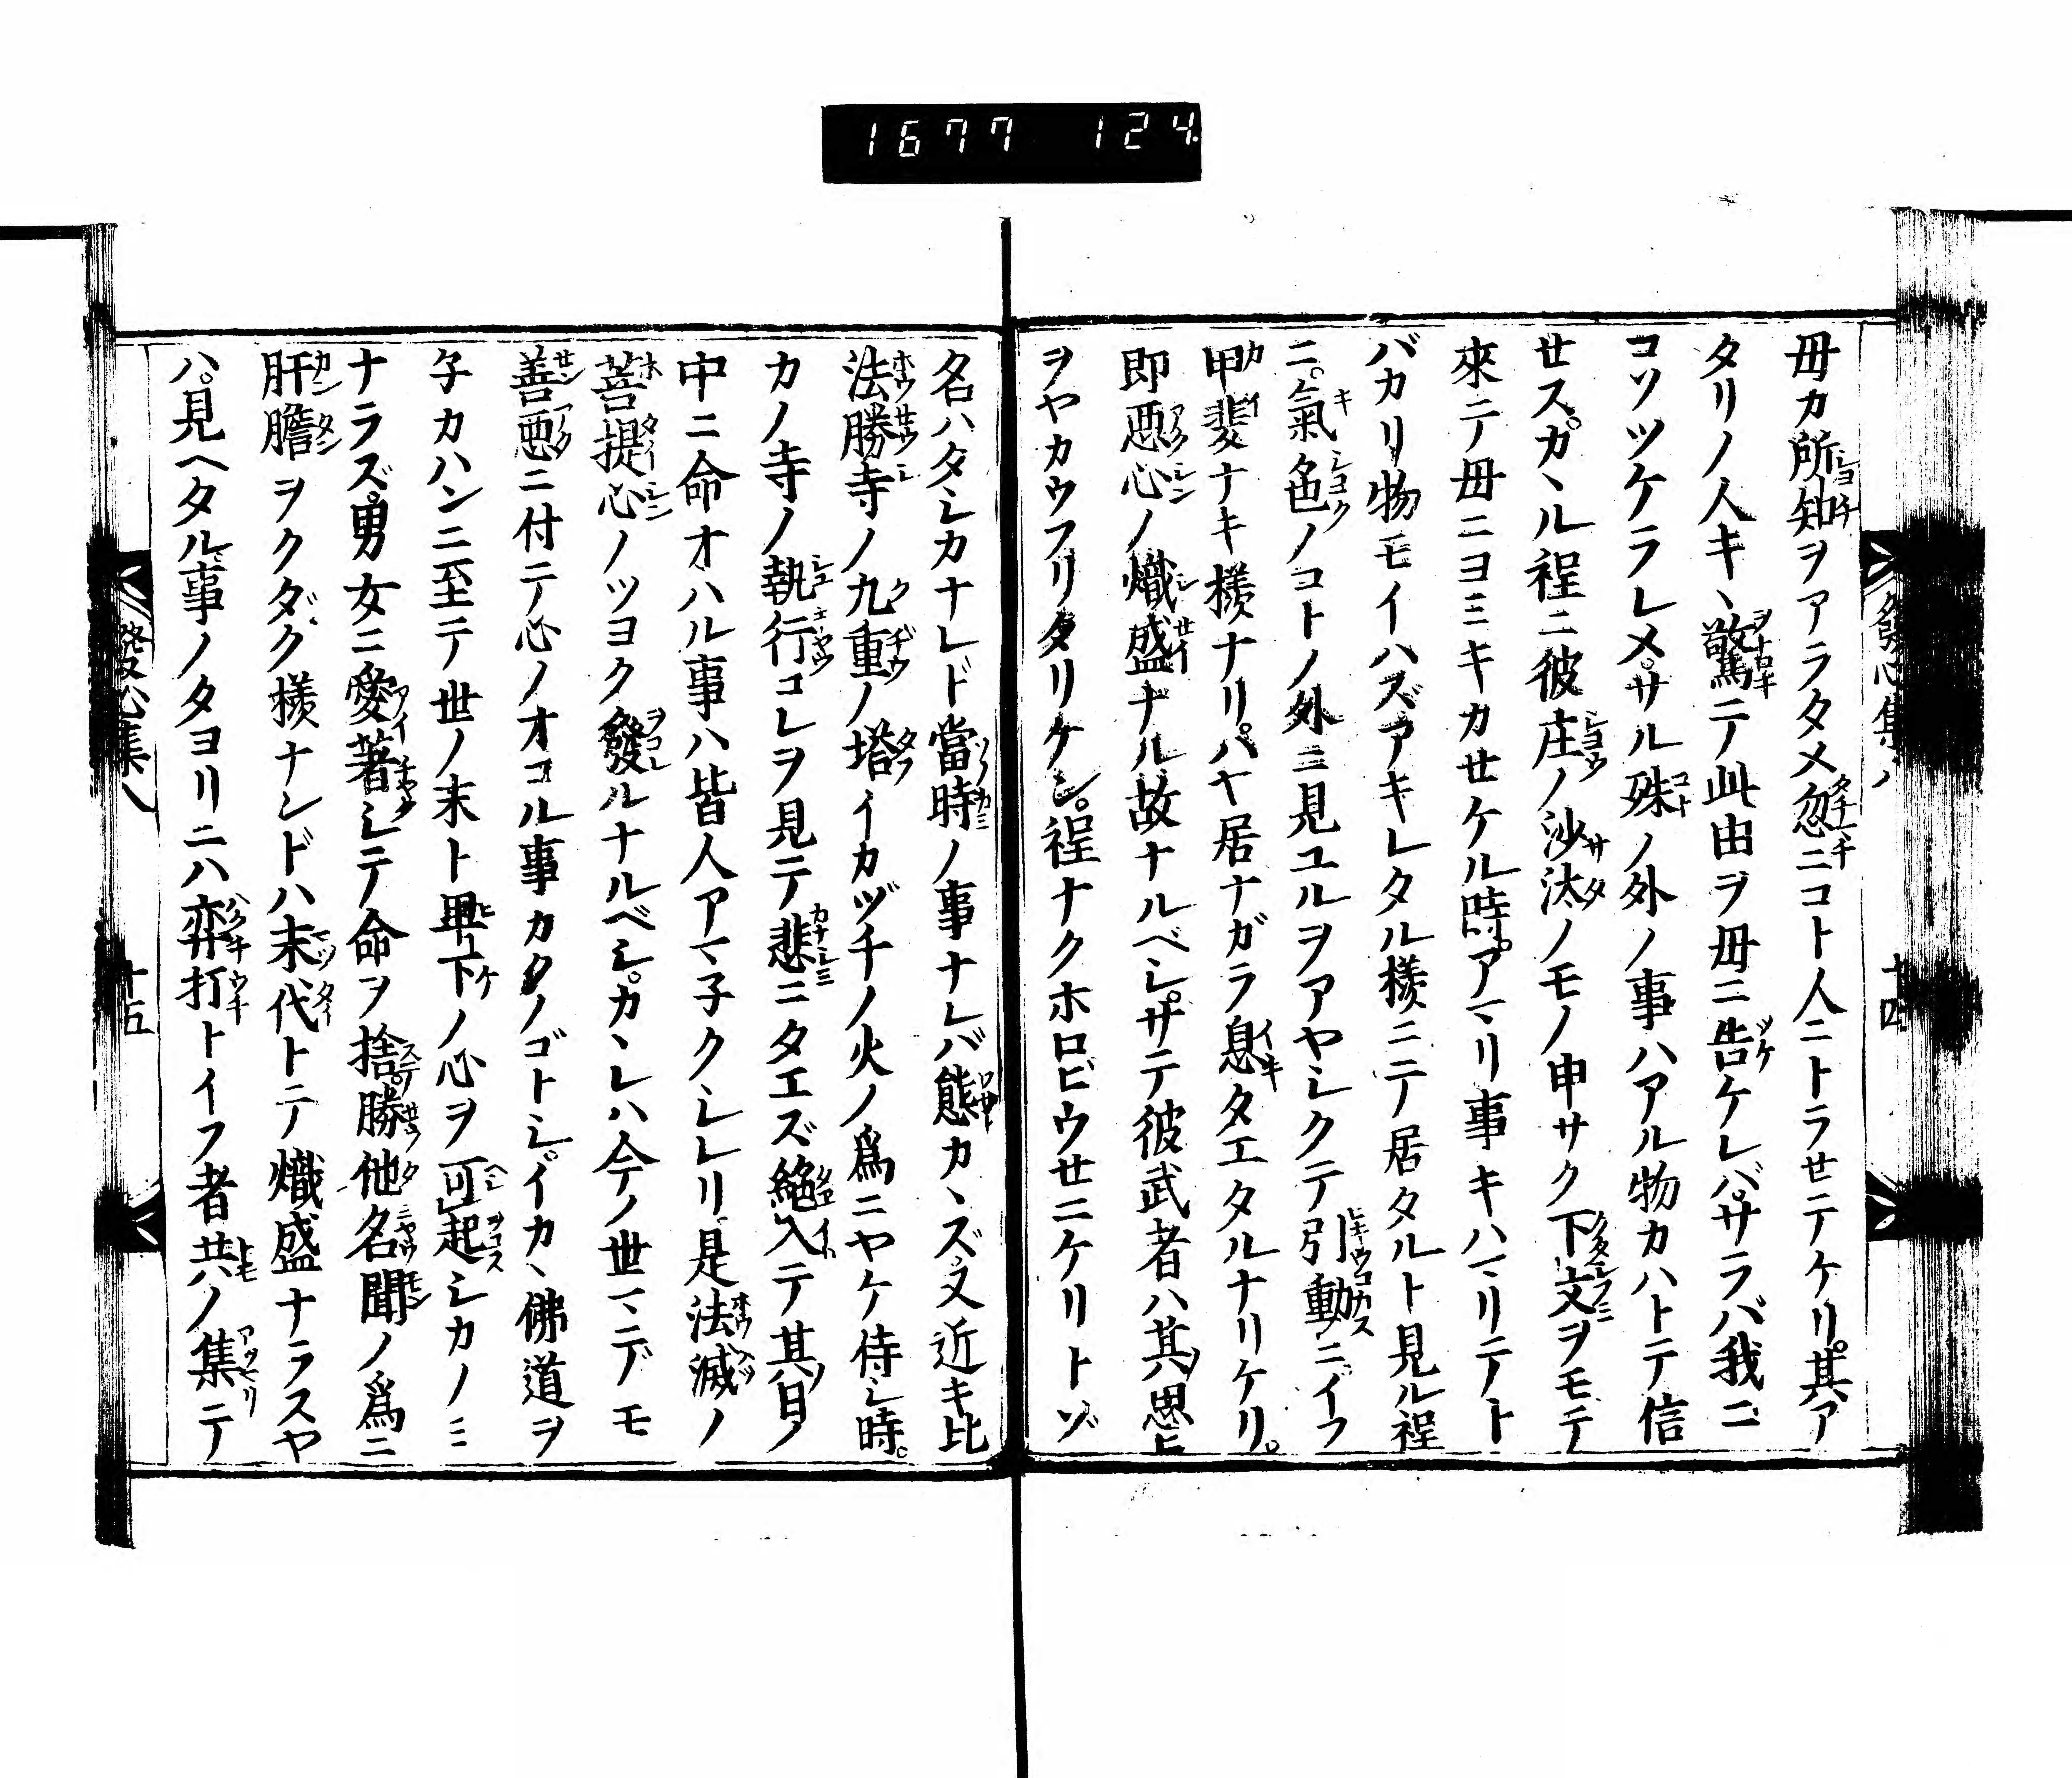 1677 124
毋カ所知ヲアラタメ忽ニコト人ニトラセテケリ。其ア
タリノ人キヽ驚テ此由ヲ毋ニ告ケレバ。サラバ我ニ
コソツケラレメ。サル殊ノ外ノ事ハアル物カハトテ信
せス。カヽル程ニ彼庄ノ沙汰ノモノ申サク下文ヲモテ
來テ毋ニヨミキカせケル時。アマリ事キハマリテト
バカリ物モイハズアキレタル様ニテ居タルト見ル程
ニ。氣色ノコトノ外ニ見ユルヲアヤシクテ引動ニ。イフ
甲斐ナキ様ナリ。ハヤ居ナガラ息タエタルナリケリ。
即惡心ノ熾盛ナル故ナルベシ。サテ彼武者ハ其思ヒ
ヲヤカウフリタリケン。程ナクホロビウせニケリトゾ
名ハタシカナレド當時ノ事ナレバ態カヽズ。又近キ比
法勝寺ノ九重ノ塔イカヅチノ火ノ爲ニヤケ侍シ時。
カノ寺ノ執行コレヲ見テ悲ニタエズ絶入テ其日ノ
中ニ命オハル事ハ皆人アマ子クシレリ。是法滅ノ
菩提心ノツヨク發ルナルベシ。カヽレハ今ノ世マデモ
善惡ニ付テ心ノオコル事カクノゴトシ。イカヽ佛道ヲ
子カハンニ至テ世ノ末ト卑下ノ心ヲ可起シカノミ
ナラズ。男女ニ愛著シテ命ヲ捨。勝他名聞ノ爲ニ
肝膽ヲクダク様ナンドハ末代トテ熾盛ナラスヤ
ハ。見ヘタル事ノタヨリニハ弈打トイフ者共ノ集テ
發心集八 十四
發心集八 十五